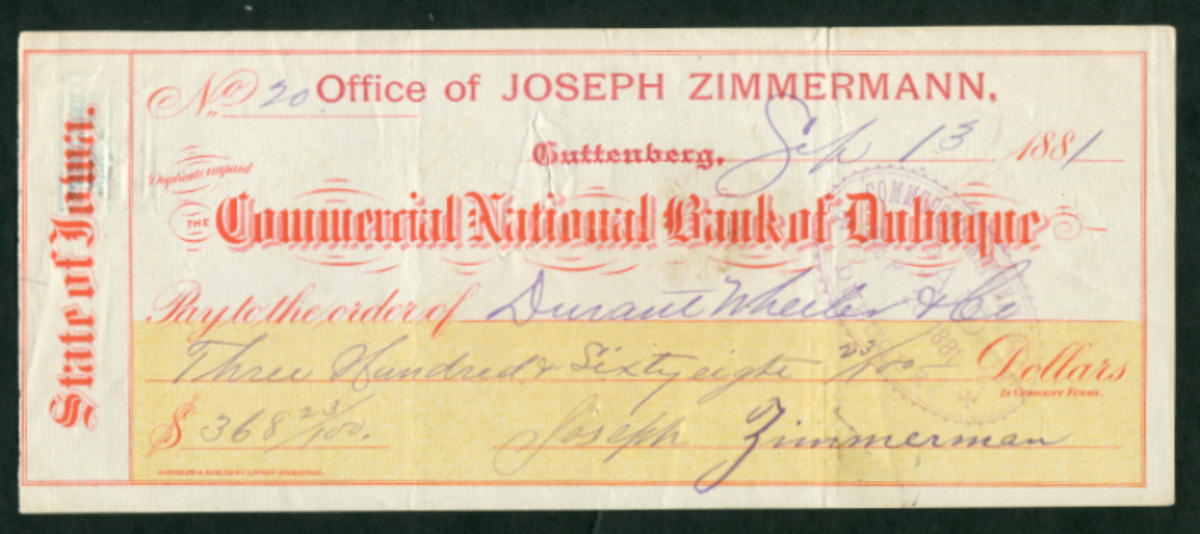 State of Iowa.
No. 20 Office of JOSEPH ZIMMERMANN,
Guttenberg, Sep 13 1881
Duplicate unpaid
THE Commercial National Bank of Dubuque
Pay to the order of Durant Wheeler & Co
Three Hundred & Sixty eight 23/100 Dollars
IN CURRENT FUNDS.
$ 368 23/100. Joseph Zimmerman